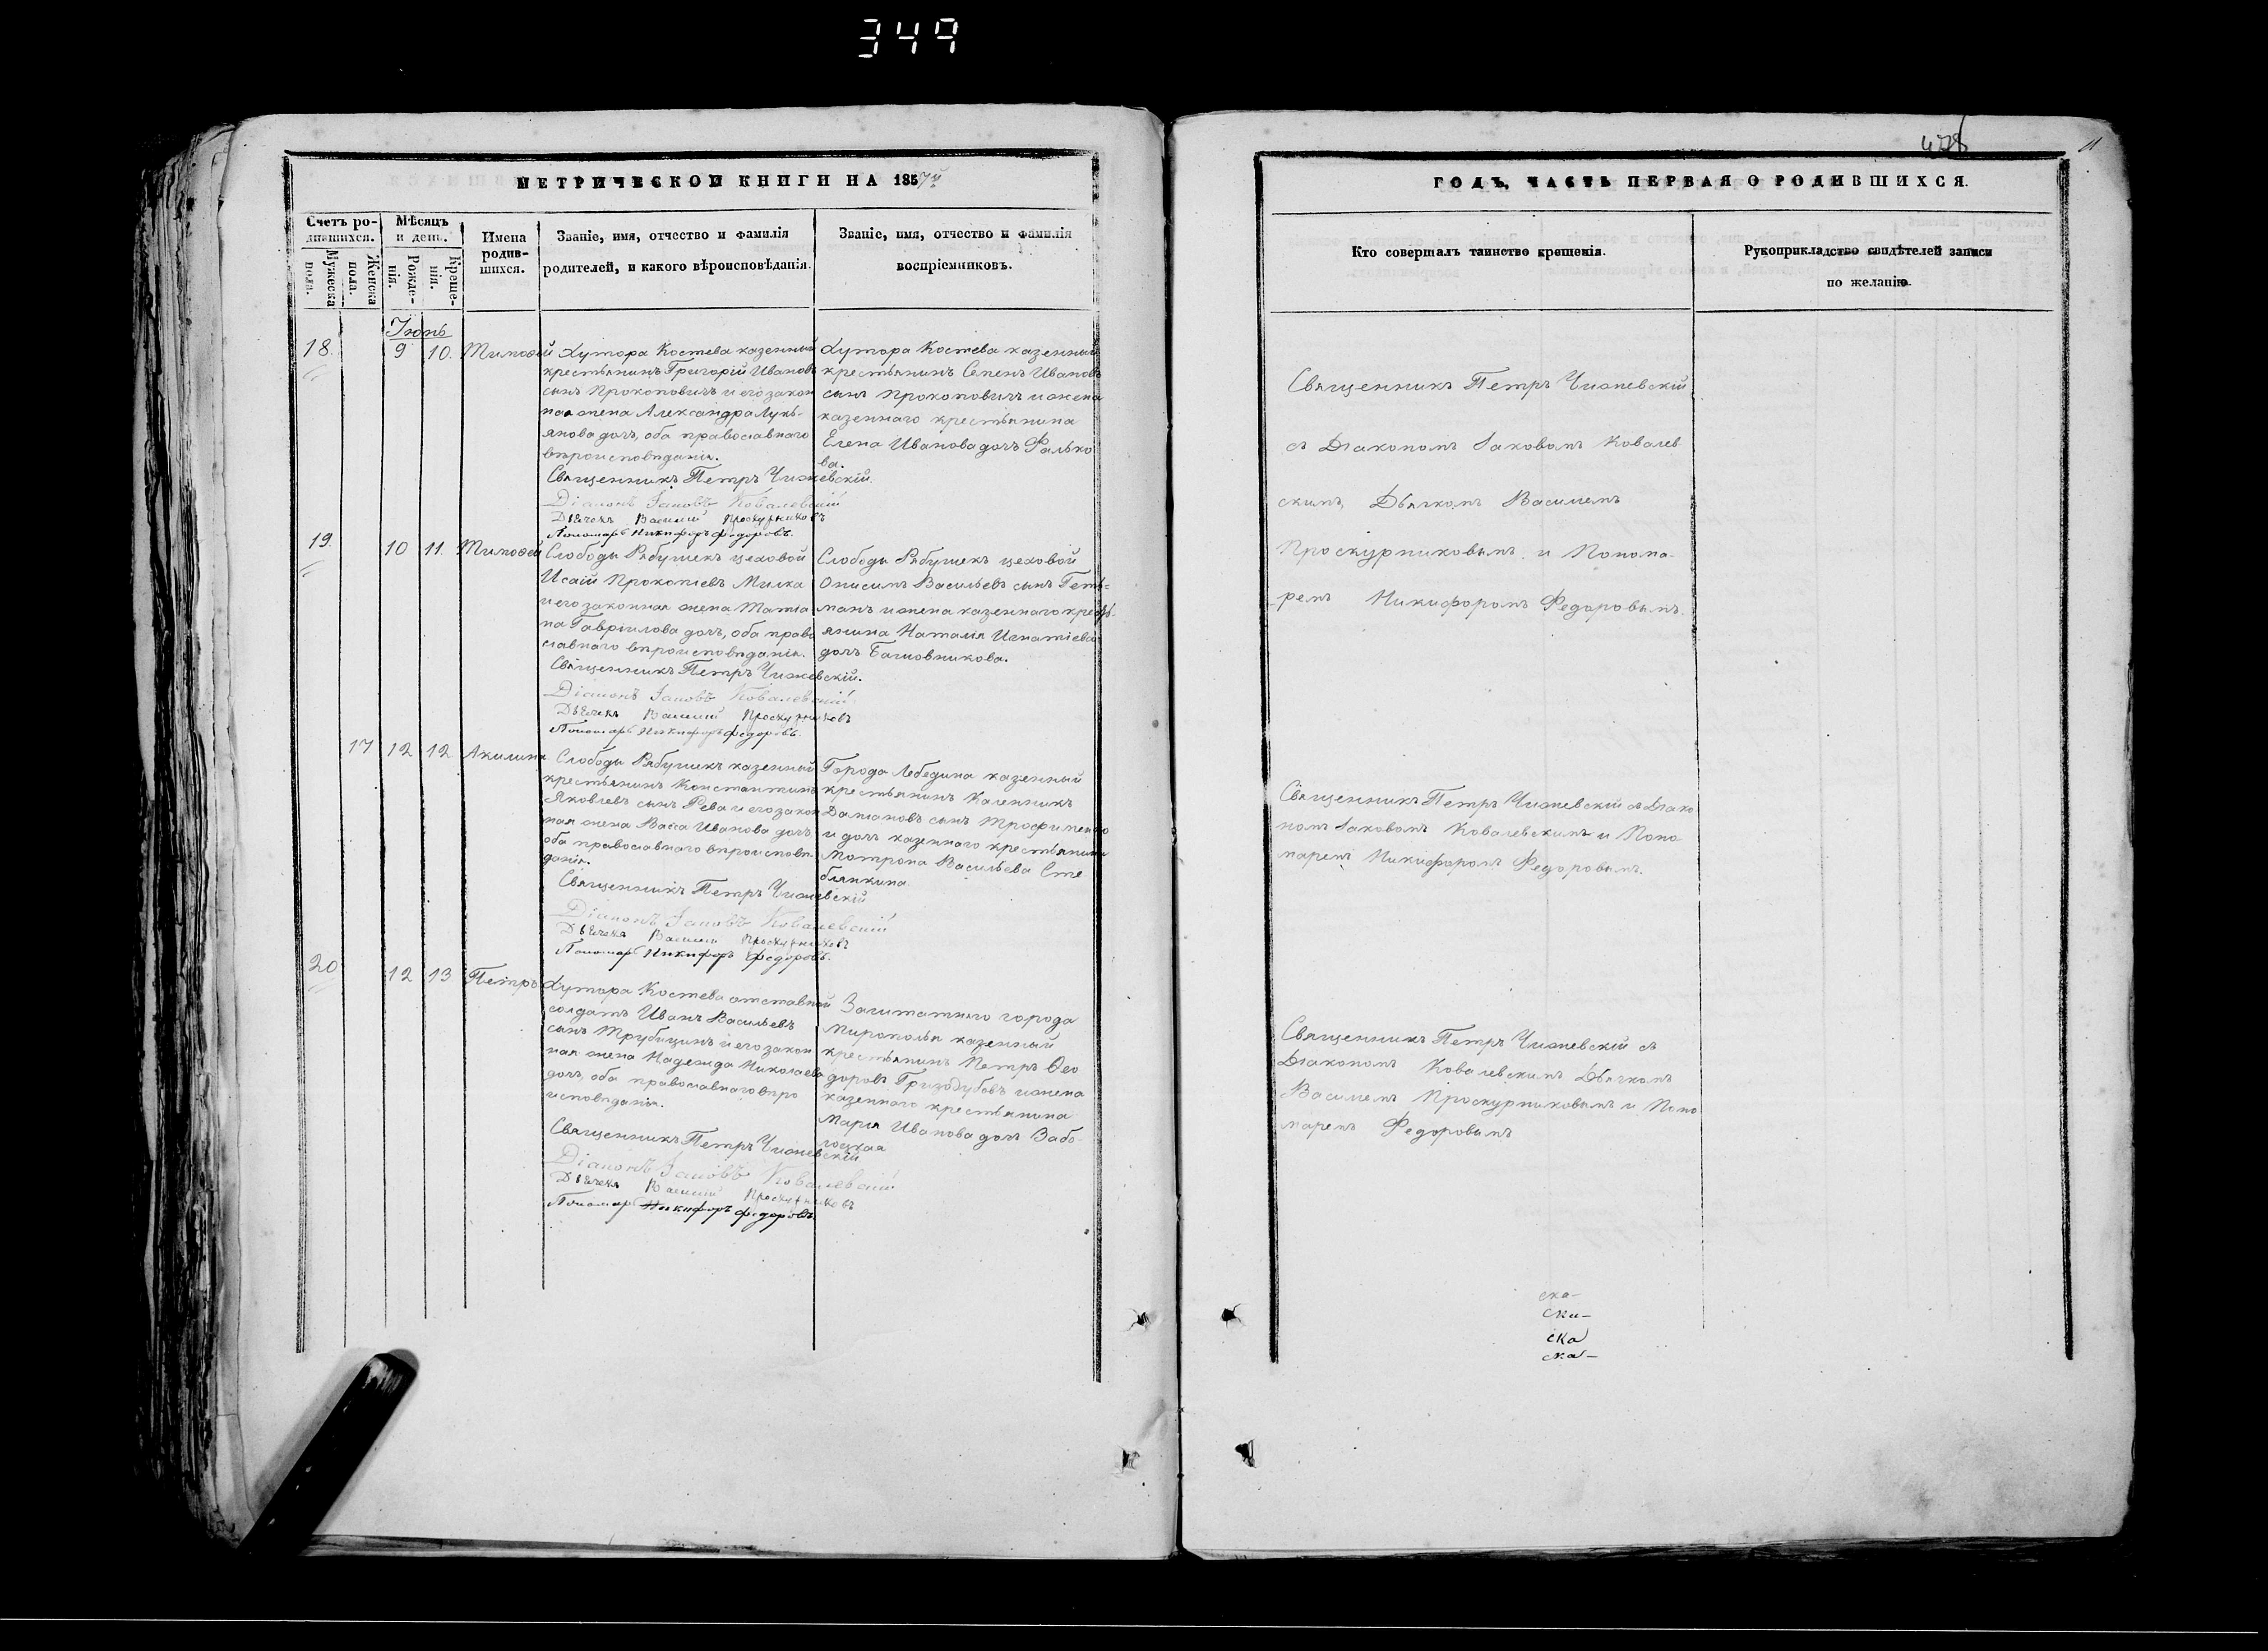 349
478
11
МЕТРИЧЕСКОЙ КНИГИ НА 1857й
Счетъ родившихся.
Мѣсяцъ и день.
Имена родившихся.
Званіе, имя, отчество и фамилія родителей, и какого вѣроисповѣданія.
Званіе, имя, отчество и фамилія воспріемниковъ.
Мужеска пола.
Женска пола.
Рожденія.
Крещенія.
Іюнь
18.
9
10.
Тимоѳей
Хутора Костева казенный
крестьянинъ Григорій Ивановъ
сынъ Прокоповичъ и его закон
ная жена Александра Лукь-
янова доч., оба православнаго
вѣроисповѣданія.
Священникъ Петръ Чижевскій.
Діаконъ Іаковъ Ковалевскій
Дьячекъ Василій Проскурниковъ
Пономарь Никифоръ Федоровъ.
Хутора Костева казенный
крестьянинъ Семенъ Ивановъ
сынъ Прокоповичъ и жена
казеннаго крестьянина
Елена Иванова доч. Фалько
ва.
19.
10
11.
Тимоѳей
Слободы Рябушекъ цеховой
Исаій Прокопіевъ Милка
и его законная жена Татіа
на Гавріилова доч., оба право
славнаго вѣроисповѣданія.
Священникъ Петръ Чижевскій.
Діаконъ Іаковъ Ковалевскій
Дьячекъ Василій Проскурниковъ
Пономарь Никифоръ Федоровъ.
Слободы Рябушекъ цеховой
Онисимъ Васильевъ сынъ Геть-
манъ и жена казеннаго кресть-
янина Наталія Игнатіева
доч.
17
12
12
Акилина
Слободы Рябушекъ казенный
крестьянинъ Константинъ
Яковлевъ сынъ Рева и его закон
ная жена Васса Иванова доч.
оба православнаго вѣроисповѣ
данія.
Священникъ Петръ Чижевскій
Діаконъ Іаковъ Ковалевскій
Дьячекъ Василій Проскурниковъ
Пономарь Никифоръ Федоровъ.
Города Лебедина казенный
крестьянинъ Каленикъ
Даміановъ сынъ Трофименко
и доч. казеннаго крестьянина
Мотрона Васильева Сте
блянкина
20
12
13
Петръ
Хутора Костева отставной
солдатъ Иванъ Васильевъ
сынъ Трубицинъ и его закон
ная жена Надежда Николаева
доч., оба православнаго вѣро
исповѣданія.
Священникъ Петръ Чижевскій
Діаконъ Іаковъ Ковалевскій
Дьячекъ Василій Проскурниковъ
Пономарь Никифоръ Федоровъ
Заштатнаго города
Мирополья казенный
крестьянинъ Петръ Ѳео
доровъ Гризодубовъ и жена
казеннаго крестьянина
Марія Иванова доч.
ГОДЪ, ЧАСТЬ ПЕРВАЯ О РОДИВШИХСЯ.
Кто совершалъ таинство крещенія.
Рукоприкладство свидѣтелей записи
по желанію.
Священникъ Петръ Чижевскій
съ Діакономъ Іаковомъ Ковалев
скимъ, Дьячкомъ Василіемъ
Проскурниковымъ и Понома-
ремъ Никифоромъ Федоровымъ.
Священникъ Петръ Чижевскій съ Діако
номъ Іаковомъ Ковалевскимъ и Поно
маремъ Никифоромъ Федоровымъ.
Священникъ Петръ Чижевскій съ
Діакономъ Ковалевскимъ Дьячкомъ
Василіемъ Проскурниковымъ и Поно
маремъ Федоровымъ
ска-
ска-
ска
ска-